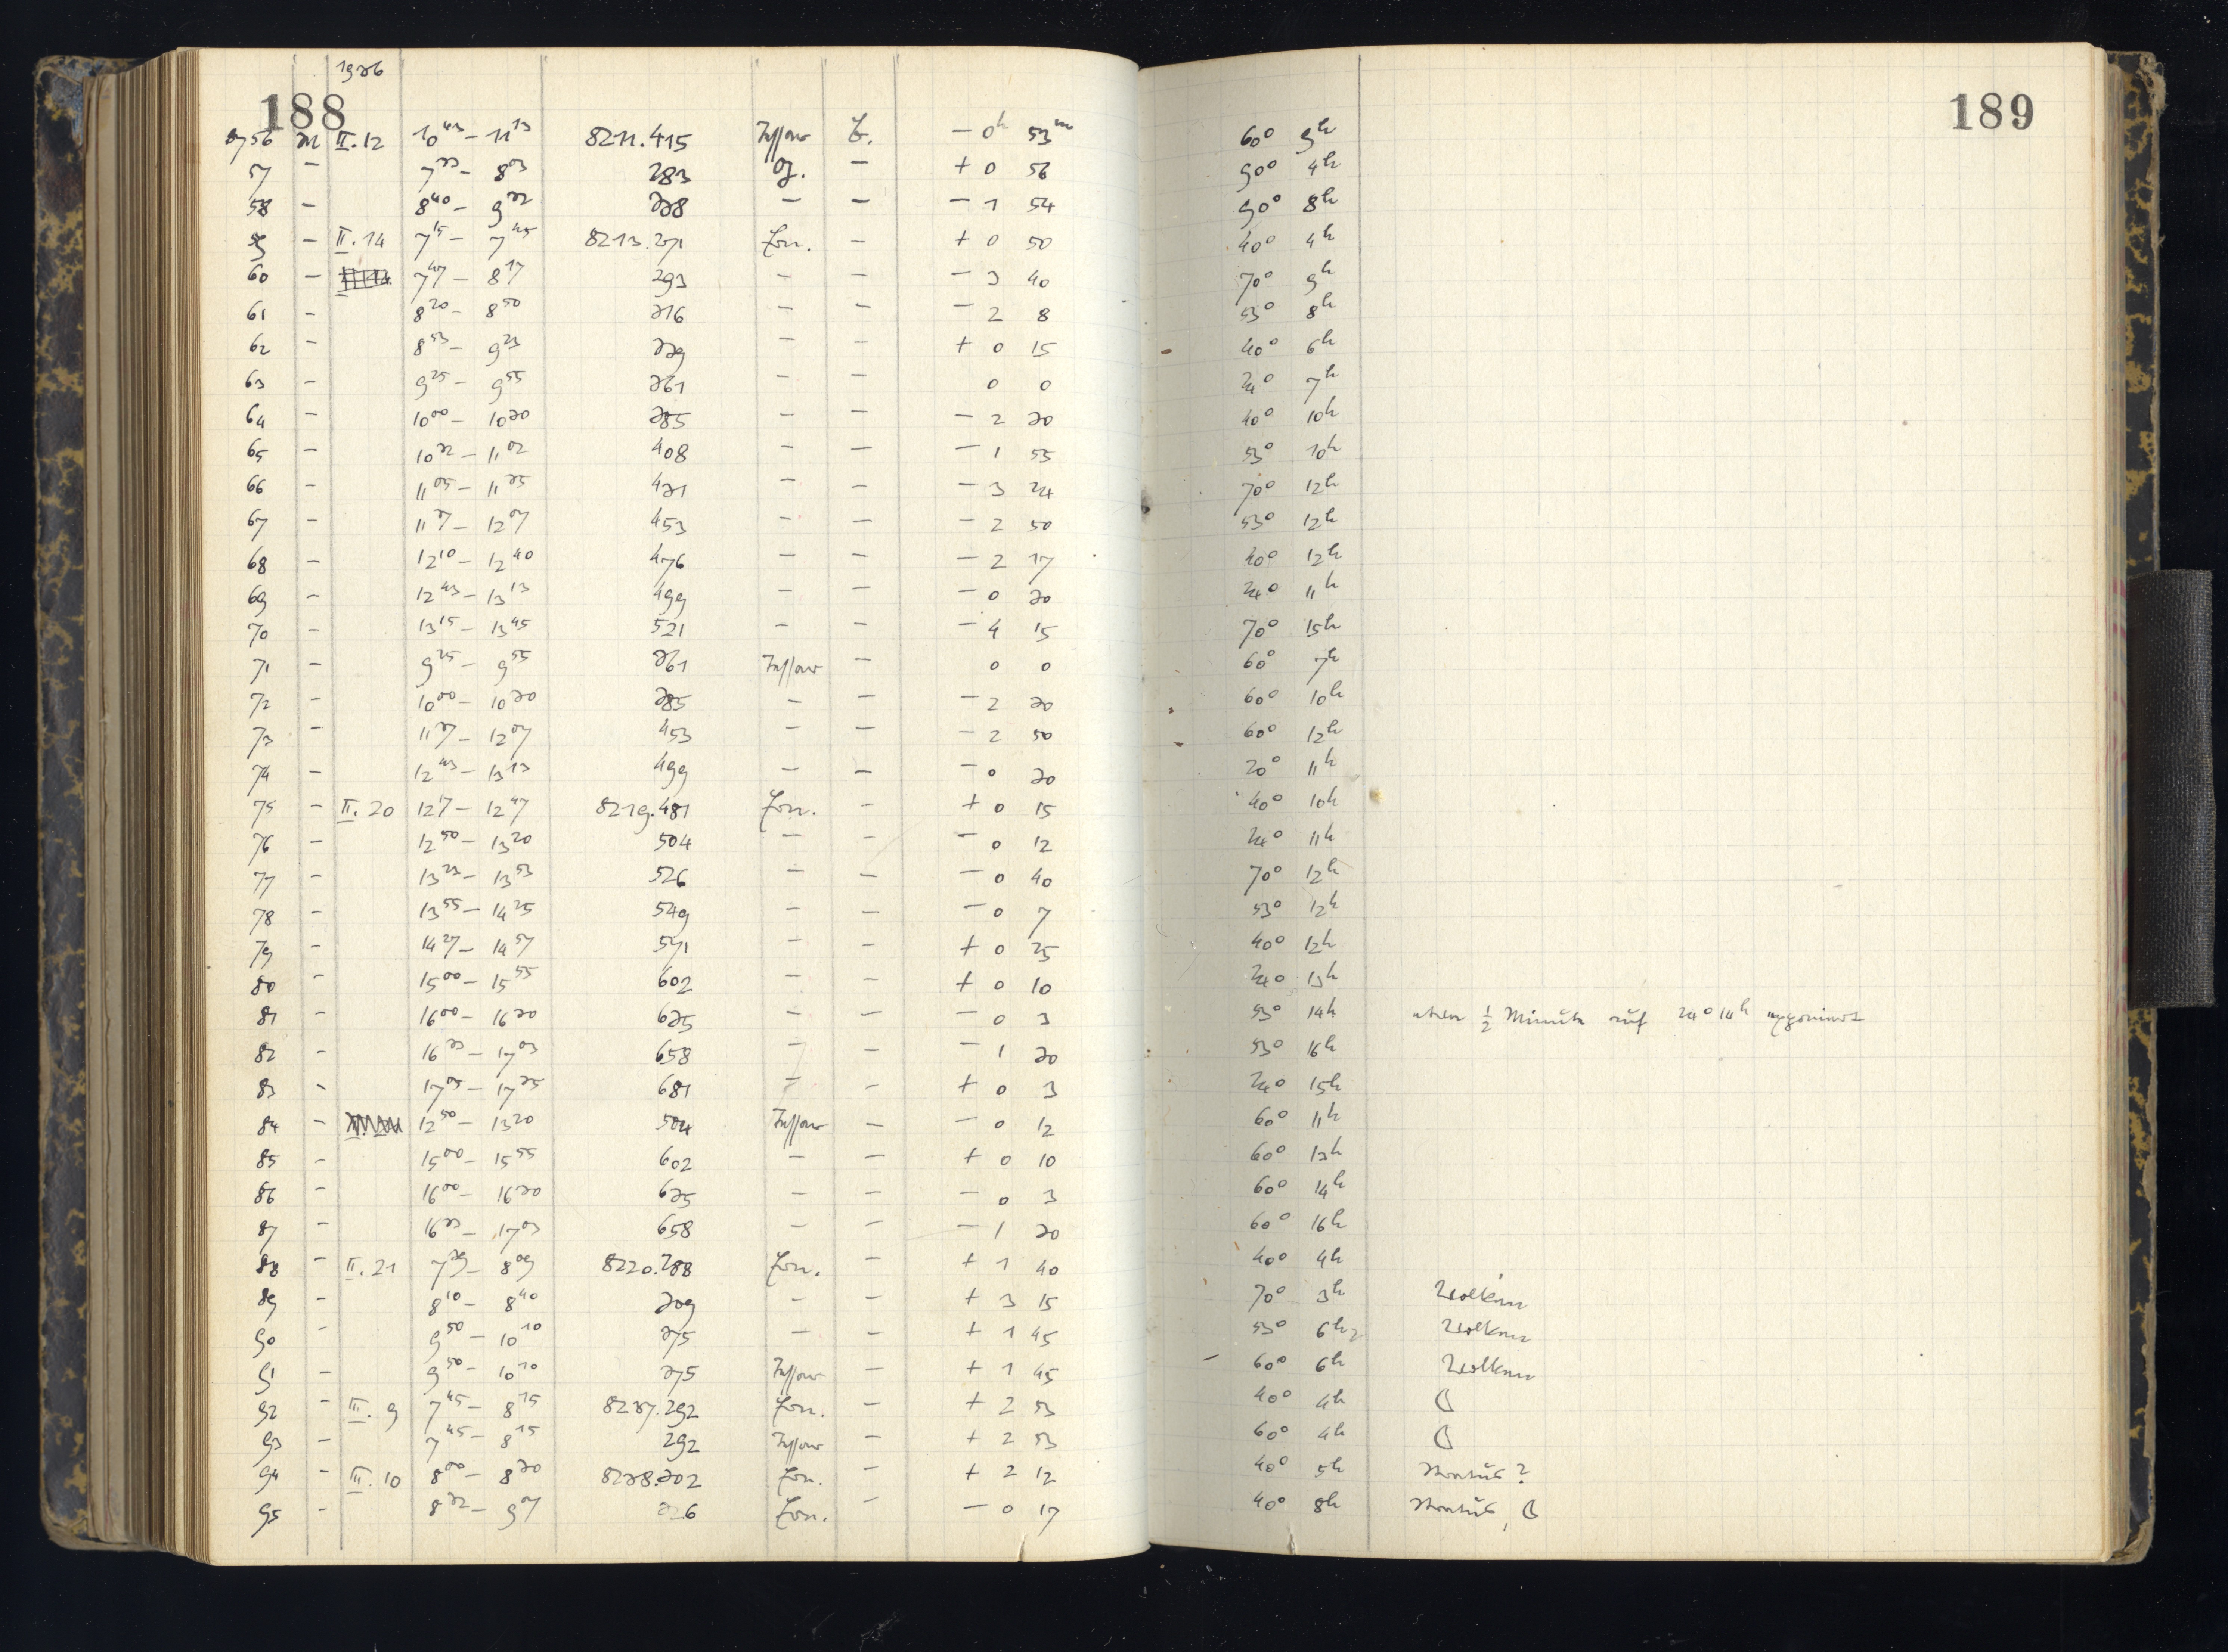 188
1936
3756 M II.12 10⁴³ – 11¹³ 8211.415 Tessar – 0ʰ 53ᵐ 60° 9ʰ
57 – 7³³ – 8⁰³ 283 – + 0 56 90° 4ʰ
58 – 8⁴⁰ – 9³² 338 – – – 1 54 90° 8ʰ
59 – II.14 7¹⁵ – 7⁴⁵ 8213.271 Ern. – + 0 50 40° 4ʰ
60 – 7⁴⁷ – 8¹⁷ 293 – – – 3 40 70° 9ʰ
61 – 8²⁰ – 8⁵⁰ 316 – – – 2 8 53° 8ʰ
62 – 8⁵³ – 9²³ 339 – – + 0 15 40° 6ʰ
63 – 9²⁵ – 9⁵⁵ 361 – – 0 0 24° 7ʰ
64 – 10⁰⁰ – 10³⁰ 385 – – – 2 30 40° 10ʰ
65 – 10³² – 11⁰² 408 – – – 1 55 53° 10ʰ
66 – 11⁰⁵ – 11³⁵ 431 – – – 3 24 70° 12ʰ
67 – 11³⁷ – 12⁰⁷ 453 – – – 2 50 53° 12ʰ
68 – 12¹⁰ – 12⁴⁰ 476 – – – 2 17 40° 12ʰ
69 – 12⁴³ – 13¹³ 499 – – – 0 30 24° 11ʰ
70 – 13¹⁵ – 13⁴⁵ 521 – – – 4 15 70° 15ʰ
71 – 9²⁵ – 9⁵⁵ 361 Tessar – 0 0 60° 7ʰ
72 – 10⁰⁰ – 10³⁰ 385 – – – 2 30 60° 10ʰ
73 – 11³⁷ – 12⁰⁷ 453 – – – 2 50 60° 12ʰ
74 – 12⁴³ – 13¹³ 499 – – – 0 30 20° 11ʰ
75 – II.20 12¹⁷ – 12⁴⁷ 8219.481 Ern. – + 0 15 40° 10ʰ
76 – 12⁵⁰ – 13²⁰ 504 – – – 0 12 24° 11ʰ
77 – 13²³ – 13⁵³ 526 – – – 0 40 70° 12ʰ
78 – 13⁵⁵ – 14²⁵ 549 – – – 0 7 53° 12ʰ
79 – 14²⁷ – 14⁵⁷ 571 – – + 0 25 40° 12ʰ
80 – 15⁰⁰ – 15⁵⁵ 602 – – + 0 10 24° 13ʰ
81 – 16⁰⁰ – 16³⁰ 635 – – – 0 3 53° 14ʰ etwa ½ Minute auf 24° 14ʰ exponiert
82 – 16³³ – 17⁰³ 658 – – – 1 30 53° 16ʰ
83 – 17⁰⁵ – 17³⁵ 681 – – + 0 3 24° 15ʰ
84 – 12⁵⁰ – 13²⁰ 504 Tessar – – 0 12 60° 11ʰ
85 – 15⁰⁰ – 15⁵⁵ 602 – – + 0 10 60° 13ʰ
86 – 16⁰⁰ – 16³⁰ 635 – – – 0 3 60° 14ʰ
87 – 16³³ – 17⁰³ 658 – – – 1 30 60° 16ʰ
88 – II.21 7³⁹ – 8⁰⁹ 8220.288 Ern. – + 1 40 40° 4ʰ
89 – 8¹⁰ – 8⁴⁰ 309 – – + 3 15 70° 3ʰ Wolken
90 – 9⁵⁰ – 10¹⁰ 375 – – + 1 45 53° 6ʰ Wolken
91 – 9⁵⁰ – 10¹⁰ 375 Tessar – + 1 45 60° 6ʰ Wolken
92 – III.9 7⁴⁵ – 8¹⁵ 8237.292 Ern. – + 2 53 40° 4ʰ ☾
93 – 7⁴⁵ – 8¹⁵ 292 Tessar – + 2 53 60° 4ʰ ☾
94 – III.10 8⁰⁰ – 8³⁰ 8238.302 Ern. – + 2 12 40° 5ʰ Stratus?
95 – 8³² – 9⁰⁷ 326 Ern. – – 0 17 40° 8ʰ Stratus, ☾
189